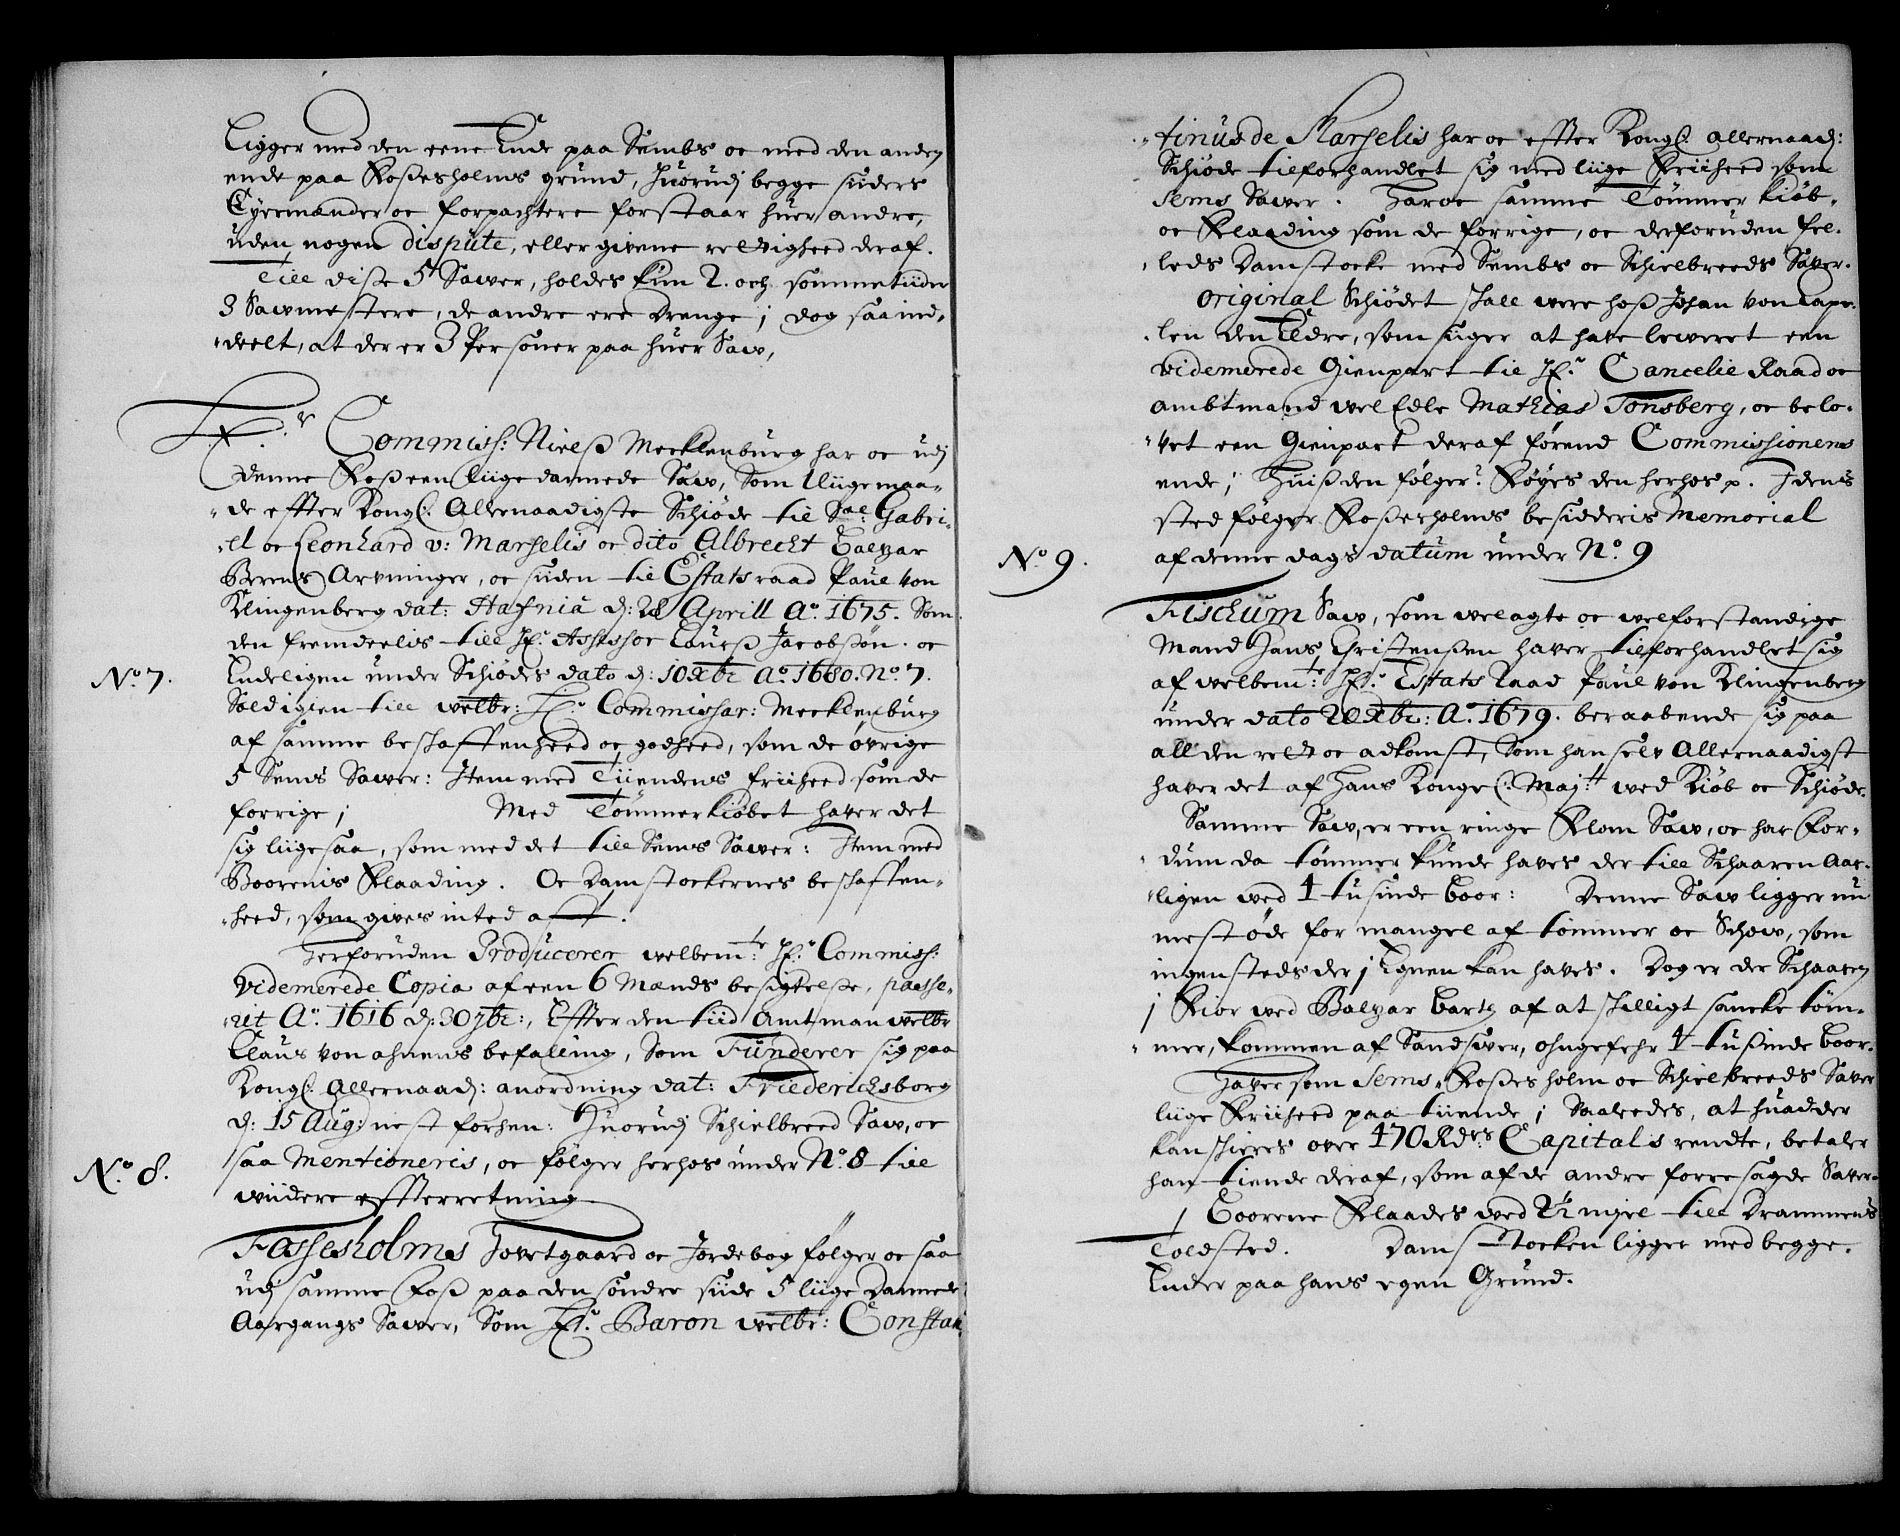 Ligger med den eene Ende paa Sembs oc med den anden
ende paa Foßesholms grund, Huorudj begge siders
Eyermænder oc forpachtere forstaar huer andre,
uden nogen dispute, eller givene rettigheed deraf.
Till diße 5 Sawer, holdes kun 2. och sommetiider
3 Sawmestere, de andre ere Drenge; dog saaind,,
,,deelt, at der er 3 Personer paa huer Saw,
Hr. Commiss: Nielß Mecklenburg har oc udj
denne Foß een liige dannede Saw, Som liigemaa,,
,,de effter Kongl: Allernaadigste Schiøde til Sal: Gabri,,
,,el oc Leonhard v: Marselis oc dito Albrecht Baltzar
Berens Arvninger, oc siiden til Estatsraad Paul von
Klingenberg dat: Hafnia d: 28 Aprill Ao. 1675. Som
den fremdeelis till Hr. Assessor Lauriß Jacobßøn. oc
No. 7.
Endeligen under Schiødes dato d: 10 Xbr. Ao. 1680. No. 7.
Soldigien till welbr: Hr. Commissar: Mecklenburg
af samme beschaffenheed oc godheed, som de øvrige
5 Sems Sawer: Item med Tiiendens friiheed som de
forrige; Med Tømmerkiøbet haver det
sig liigesaa, som med det till Sems Sawer: Item med
Boorenis Flaading. Oc Damstockernes beschaffen,,
,,heed, som gives inted aff.
Herforuden Producerer welbemte: Hr. Commiss:
Videmerede Copia af een 6 Mænds besigtelße, passe,,
,,ret Ao. 1616 d: 30 7br:, Effter den tiid Amtman welbr
Claus von Ahnens befalling, Som Funderer sig paa
Kongl: Allernaad: anordning dat: Friederichsborg
d: 15 Aug: nest forhen: Huorudj Schielbreed Saw, oc
No. 8.
saa Mentioneris, oc følger herhos under No. 8 till
wiidere effterretning
Fossesholms Hovetgaard oc Jordebog følger oc saa
udj samme Foß paa den søndre siide 5 liige Dannede
Aargangs Sawer, Som Hr. Baron welbr: Constan,,
,,tinus de Marselis har oc effter Kongl: allernaad:
Schiøde tilforhandlet sig med liige Friiheed som
Sems Sawer. Haroc samme Tømmer kiøb,,
oc Flaading som de forrige, oc derforuden fel,,
,,leds Damstocke med Sembs oc Schielbreeds Sawer.
Original Schiødet schall were hoß Johan von Cape,,
,,len den Eldre, som siiger at have leweret een
Videmerede Gienpart til Hr. Cancelie Raad oc
Ambtmand wel Edle Mathias Tonsberg, oc belo,,
,,vet een Gienpart deraf førend Commissionens
ende; Huiß den følger? Føyes den herhos p. Idens
sted følger Foßesholms besidderis Memorial
No. 9.
af denne dags datum under No. 9
Fischum Saw, som welagte oc welforstandige
Mand Hans Christenßen haver tilforhandlet sig
af welbemte: Hr. Estats Raad Paul von Klingenberg
under dato 20 Xbr: Ao. 1679. beraabende sig paa
all den rett oc adkomst, Som han selv Allernaadigst
haver det af Hans Kongel: Maytt wed Kiøb oc Schiøde.
Samme Saw, er een ringe Flom Saw, oc har For,,
,,dum da tømmer kunde haves der till Schaaren Aar,,
,,ligen wed 4 tusinde Boor: Denne Saw ligger nu
mest øde for mangel af tømmer oc Schow, som
ingensteds der j Egnen kan haves. Dog er der Schaaren
j Fior wed Baltzar Bartz af at schilligt sancke tøm,,
,,mer, kommen af Sandsver, ohngefehr 4 tusinde Boor.
Haver som Sems, Foßesholm oc Schielbreeds Sawer
liige Friiheed paa tiiende; Saaledes, at huad der
kan schieres over 470 Rdrs Capitals rendte, betaler
han tiende deraf, som af de andre forresagde Sawer.
Boorene Flaades wed 2½ miil till Drammens
Toldsted. Damstocken ligger med begge
Ender paa hans egen Grund.